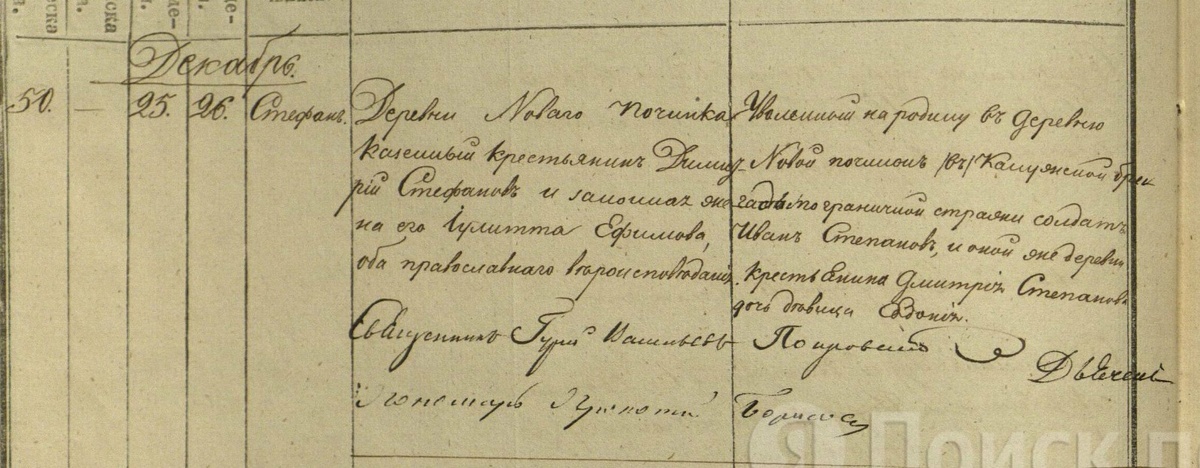 ска
ска
де-
де-
Декабрь.
50. — 25. 26. Стефанъ.
Деревни Новаго Починка
казенный крестьянинъ Димит-
рій Стефановъ и законная же-
на его Іулитта Ефимова,
оба православнаго вѣроисповѣданія.
Уволенный на родину въ деревню
Новой починокъ (въ)
пограничной стражи солдатъ
Иванъ Степановъ, и оной же деревни
крестьянина Дмитрія Степанова
дочь дѣвица Евдокія.
Священникъ Гурій Васильевъ Покровскій
Пономарь Борисовъ
Поиск п